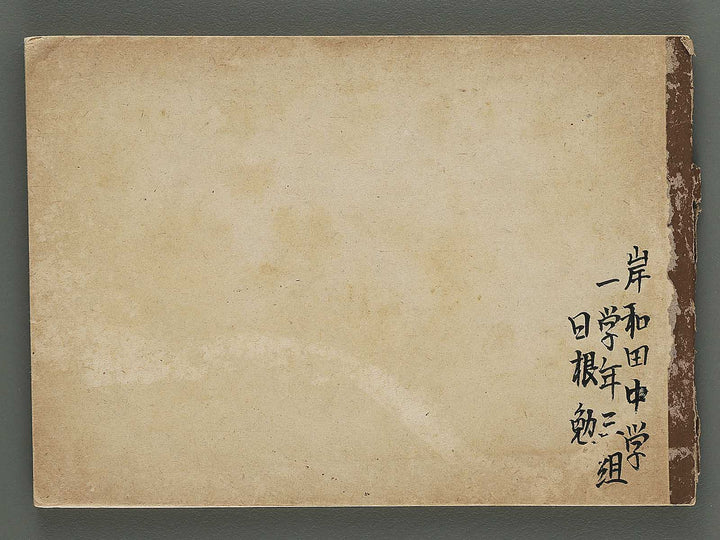 岸和田中学
一学年三組
日根勉